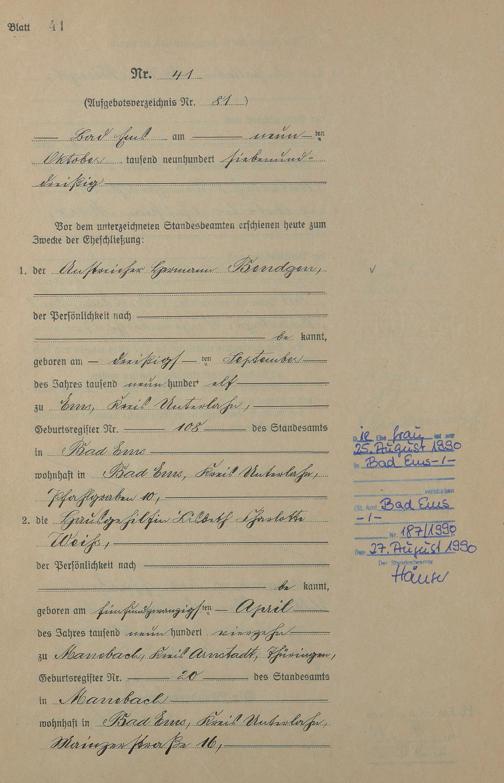 Blatt 41
Nr. 41
(Aufgebotsverzeichnis Nr. 81)
Bad Ems am neun ten
Oktober tausend neunhundert siebenund-
dreißig
Vor dem unterzeichneten Standesbeamten erschienen heute zum
Zwecke der Eheschließung:
1. der Anstreicher Hermann Bendgen,
der Persönlichkeit nach
be kannt,
geboren am dreißigst en September
des Jahres tausend neun hundert elf
zu Ems, Kreis Unterlahn,
Geburtsregister Nr. 108 des Standesamts
in Bad Ems
wohnhaft in Bad Ems, Kreis Unterlahn,
Pfahlgraben 10,
2. die Hausgehilfin Lisbeth Charlotte
Weiß,
der Persönlichkeit nach
be kannt,
geboren am fünfundzwanzigsten April
des Jahres tausend neun hundert vierzehn
zu Manebach, Kreis Arnstadt, Thüringen,
Geburtsregister Nr. 20 des Standesamts
in Manebach
wohnhaft in Bad Ems, Kreis Unterlahn,
Mainzerstraße 16,
Die Ehefrau ist am
25. August 1990
in Bad Ems -/-
verstorben
(St. Amt Bad Ems
-/-
Nr. 187/1990
Den 27. August 1990
Der Standesbeamte